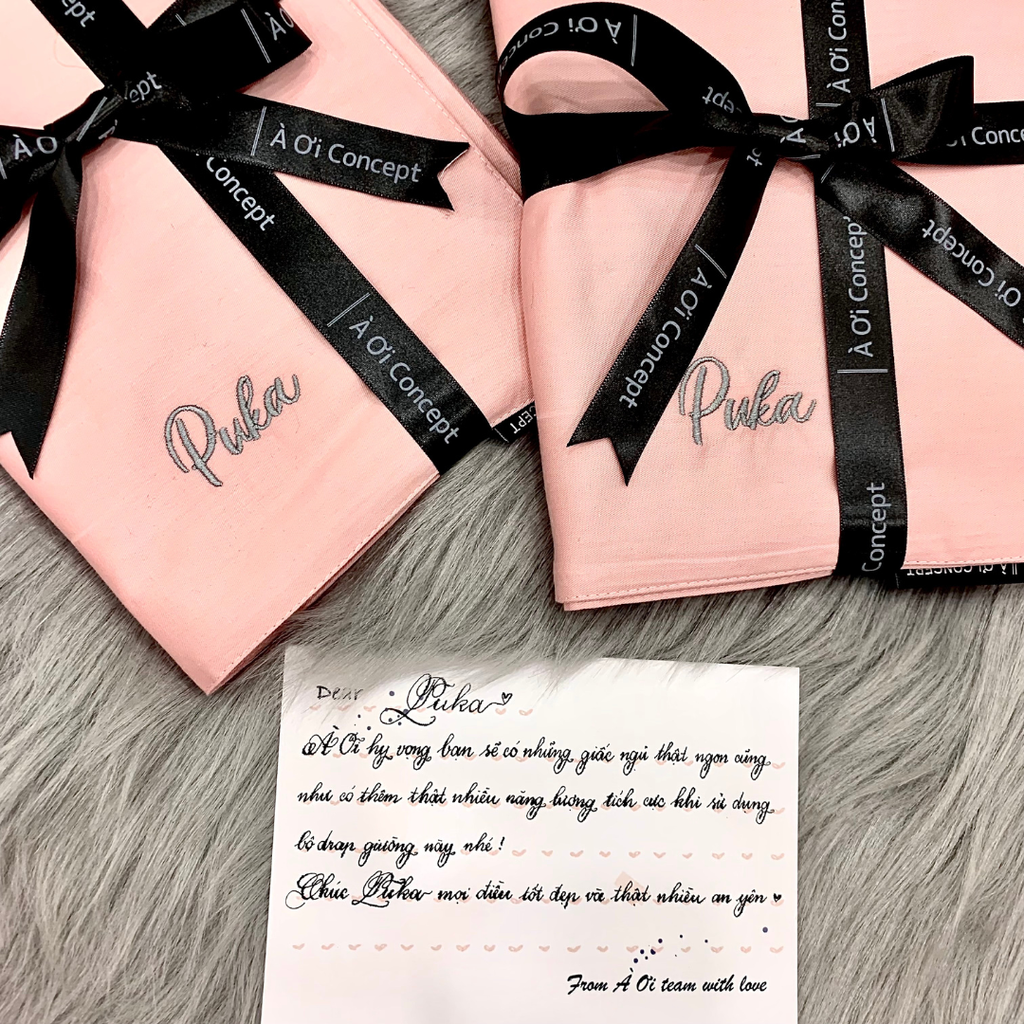 ept
À O
ept
À O
À Ơi Concept
Concept
À Ơi Concept
Puka
CEPT
Ơi Conc
À Ơi
cept
À Ơi Co
À Ơi
Ơi Conc
À Ơi Concept
À Ơi Concept
Concept
À Ơi
Puka
Concept
À ƠI CONCEPT
Dear Puka
À Ơi hy vọng bạn sẽ có những giấc ngủ thật ngon cũng
như có thêm thật nhiều năng lượng tích cực khi sử dụng
bộ drap giường này nhé !
Chúc Puka mọi điều tốt đẹp và thật nhiều an yên
From À Ơi team with love